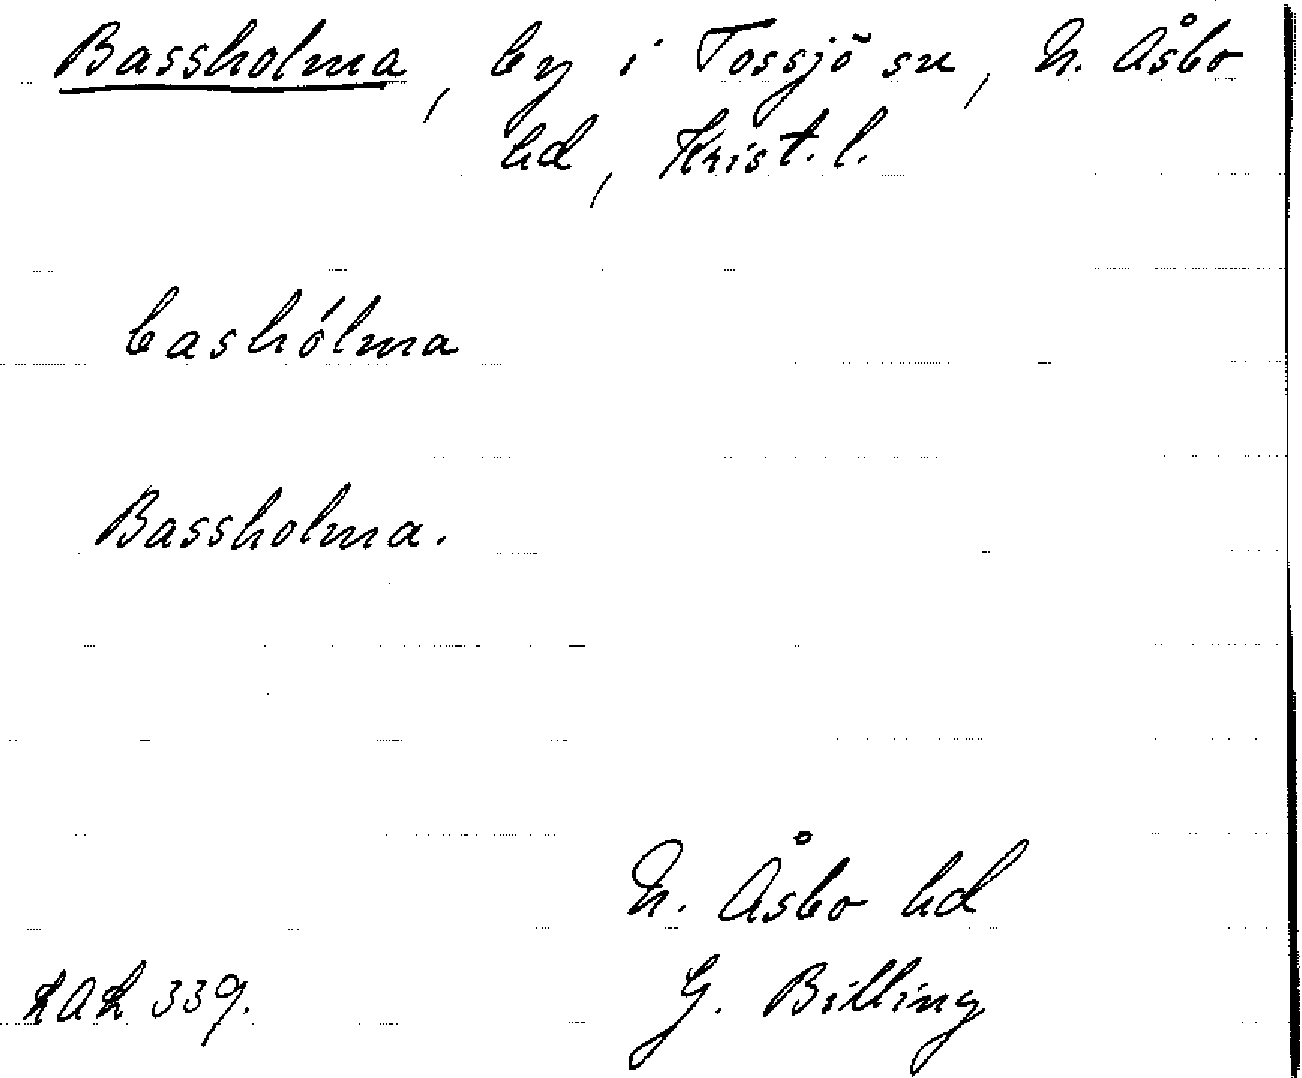 Bassholma, by i Tossjö sn, N. Åsbo
hd, Krist. l.
bashólma
Bassholma.
N. Åsbo hd
LAL 339. G. Billing